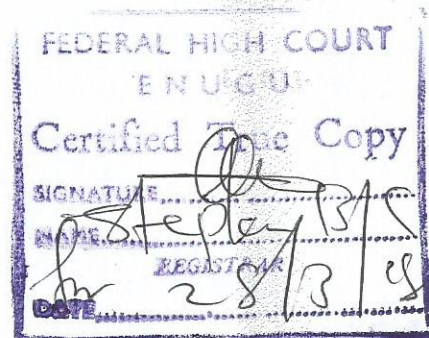 FEDERAL HIGH COURT
ENUGU
Certified True Copy
SIGNATURE
NAME
REGISTRAR
DATE 28/3/